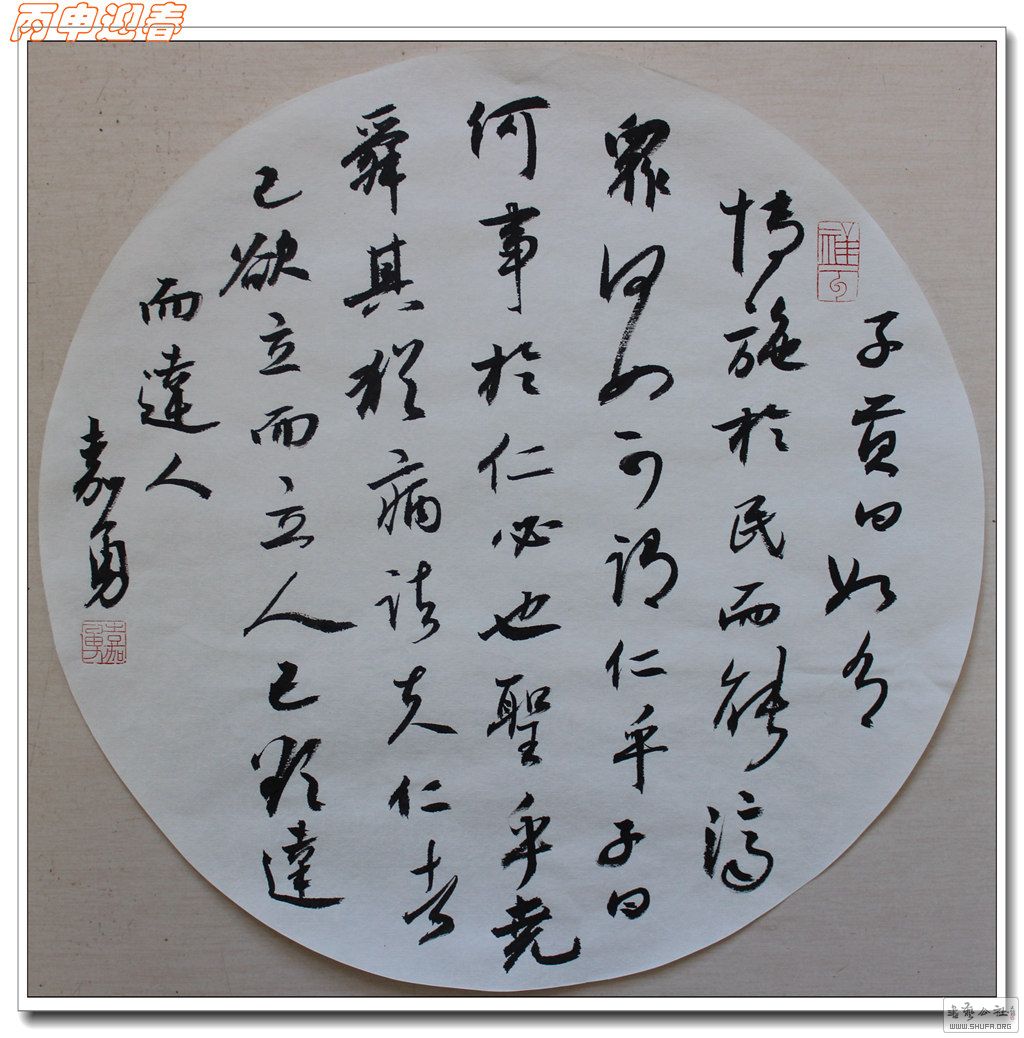 丙申迎春
子貢曰如有
博施於民而能濟
眾何如可謂仁乎子曰
何事於仁必也聖乎堯
舜其猶病諸夫仁者
己欲立而立人己欲達
而達人
嘉勇
嘉勇
書藝公社
WWW.SHUFA.ORG